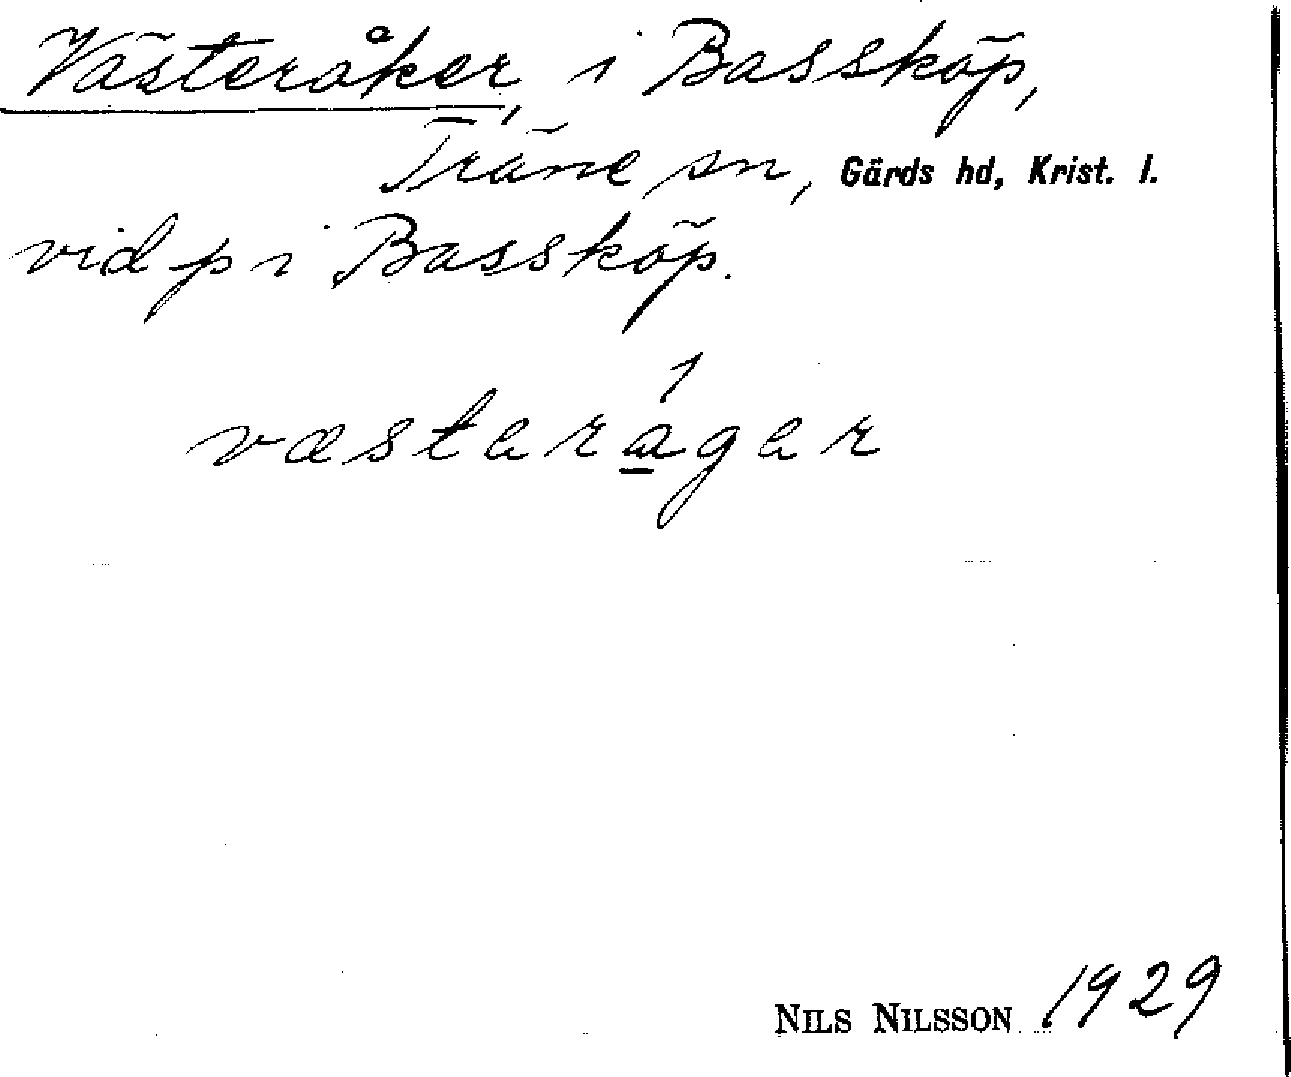 Västeråker, i Bassköp,
Träne sn, Gärds hd, Krist. l.
vid p i Bassköp.
væsteråger
NILS NILSSON 1929